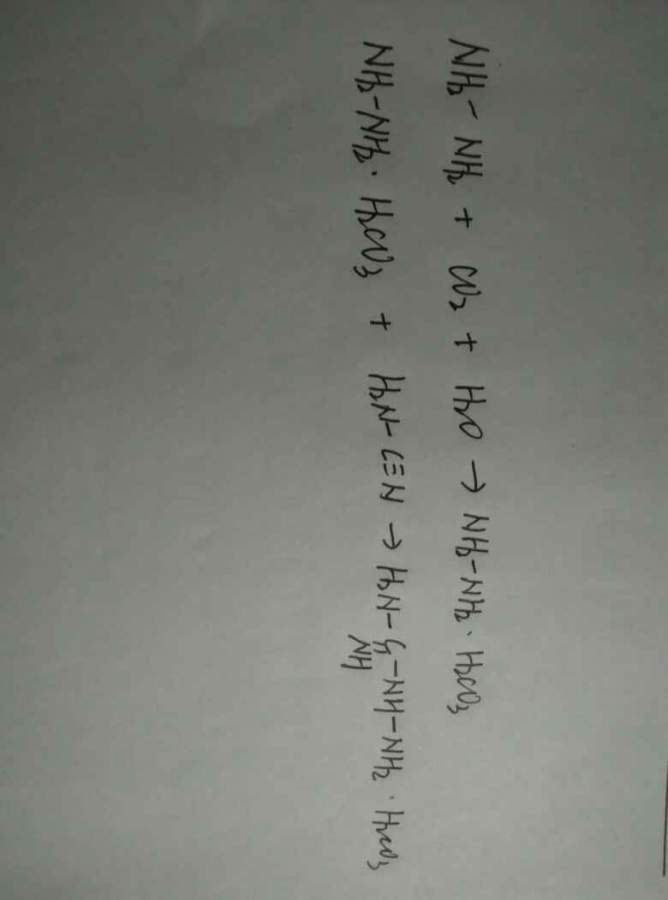 NH₂-NH₂ + CO₂ + H₂O → NH₂-NH₂·H₂CO₃
NH₂-NH₂·H₂CO₃ + H₂N-C≡N → H₂N-C-NH-NH₂·H₂CO₃
NH